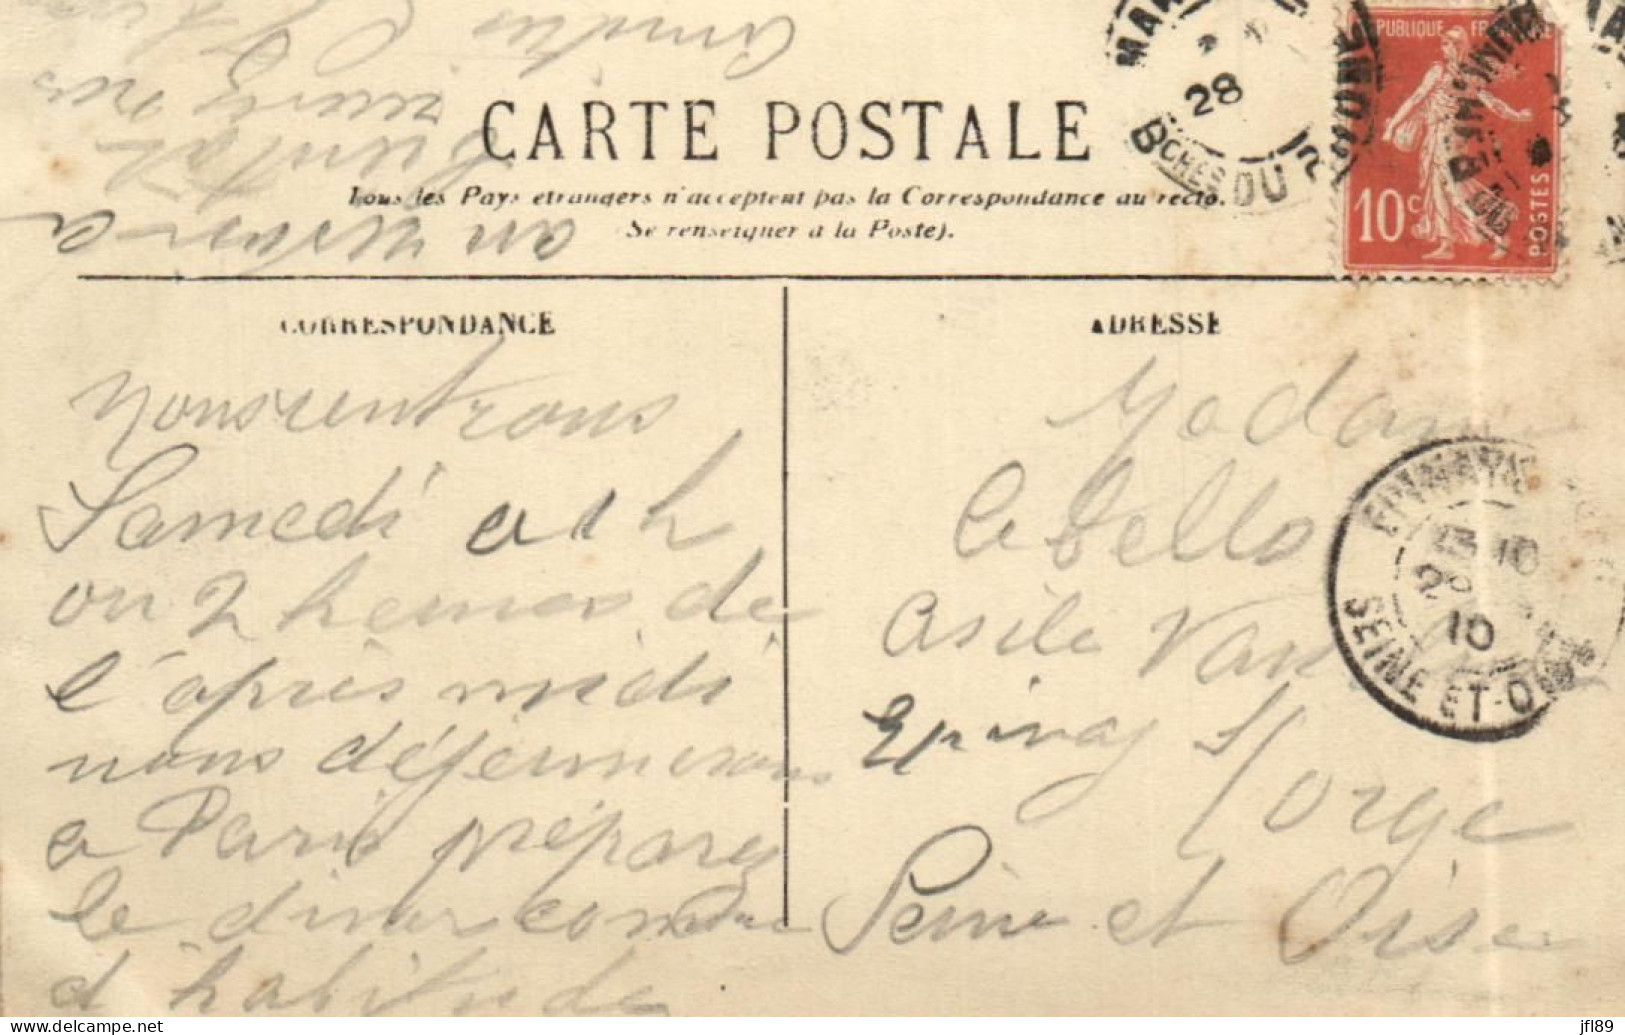 CARTE POSTALE
Tous les Pays etrangers n'acceptent pas la Correspondance au recto.
(Se renseigner a la Poste).
REPUBLIQUE FRANÇAISE
10c
POSTES
28
BCHES DU R
CORRESPONDANCE
ADRESSE
Nous rentrons
Samedi a 1 h
ou 2 heures de
l'après midi
nous déjeunerons
a Paris préparez
le diner comme
d'habitude
au revoir a
bientot
nos
amitiés
Madame
Cabello
Asile
Epinay S/
Orge
Seine et Oise
10
SEINE-ET-OISE
delcampe.net
jfl89